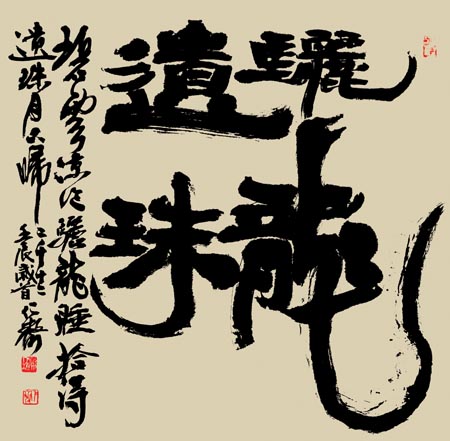 驪龍
遺珠
碧雲凉冷驪龍睡拾得
遺珠月下歸
壬辰歲首